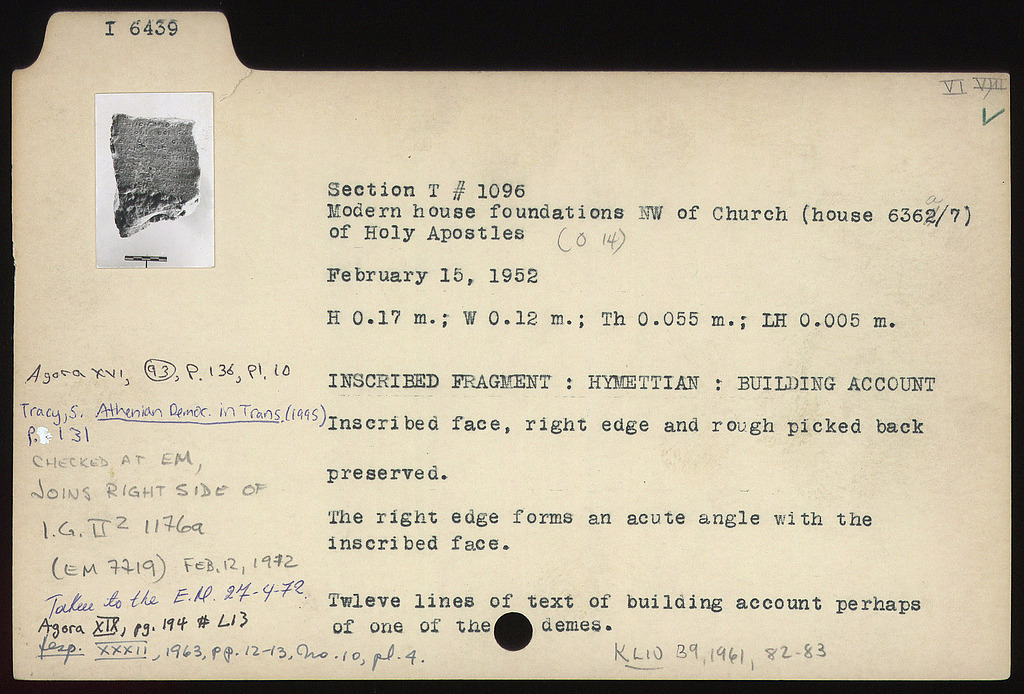 I 6439
VI VIII
Section T # 1096
Modern house foundations NW of Church (house 636a/7)
of Holy Apostles (O 14)
February 15, 1952
H 0.17 m.; W 0.12 m.; Th 0.055 m.; LH 0.005 m.
INSCRIBED FRAGMENT : HYMETTIAN : BUILDING ACCOUNT
Inscribed face, right edge and rough picked back
preserved.
The right edge forms an acute angle with the
inscribed face.
Twleve lines of text of building account perhaps
of one of the demes.
Agora XVI, 93, P. 136, Pl. 10
Tracy, S. Athenian Democ. in Trans. (1995)
p. 131
CHECKED AT EM,
JOINS RIGHT SIDE OF
I.G. II² 1176a
(EM 7719) FEB. 12, 1972
Taken to the E.M. 27-4-72.
Agora XIX, pg. 194 # L13
Hesp. XXXII, 1963, pp. 12-13, no. 10, pl. 4.
KLIO 39, 1961, 82-83